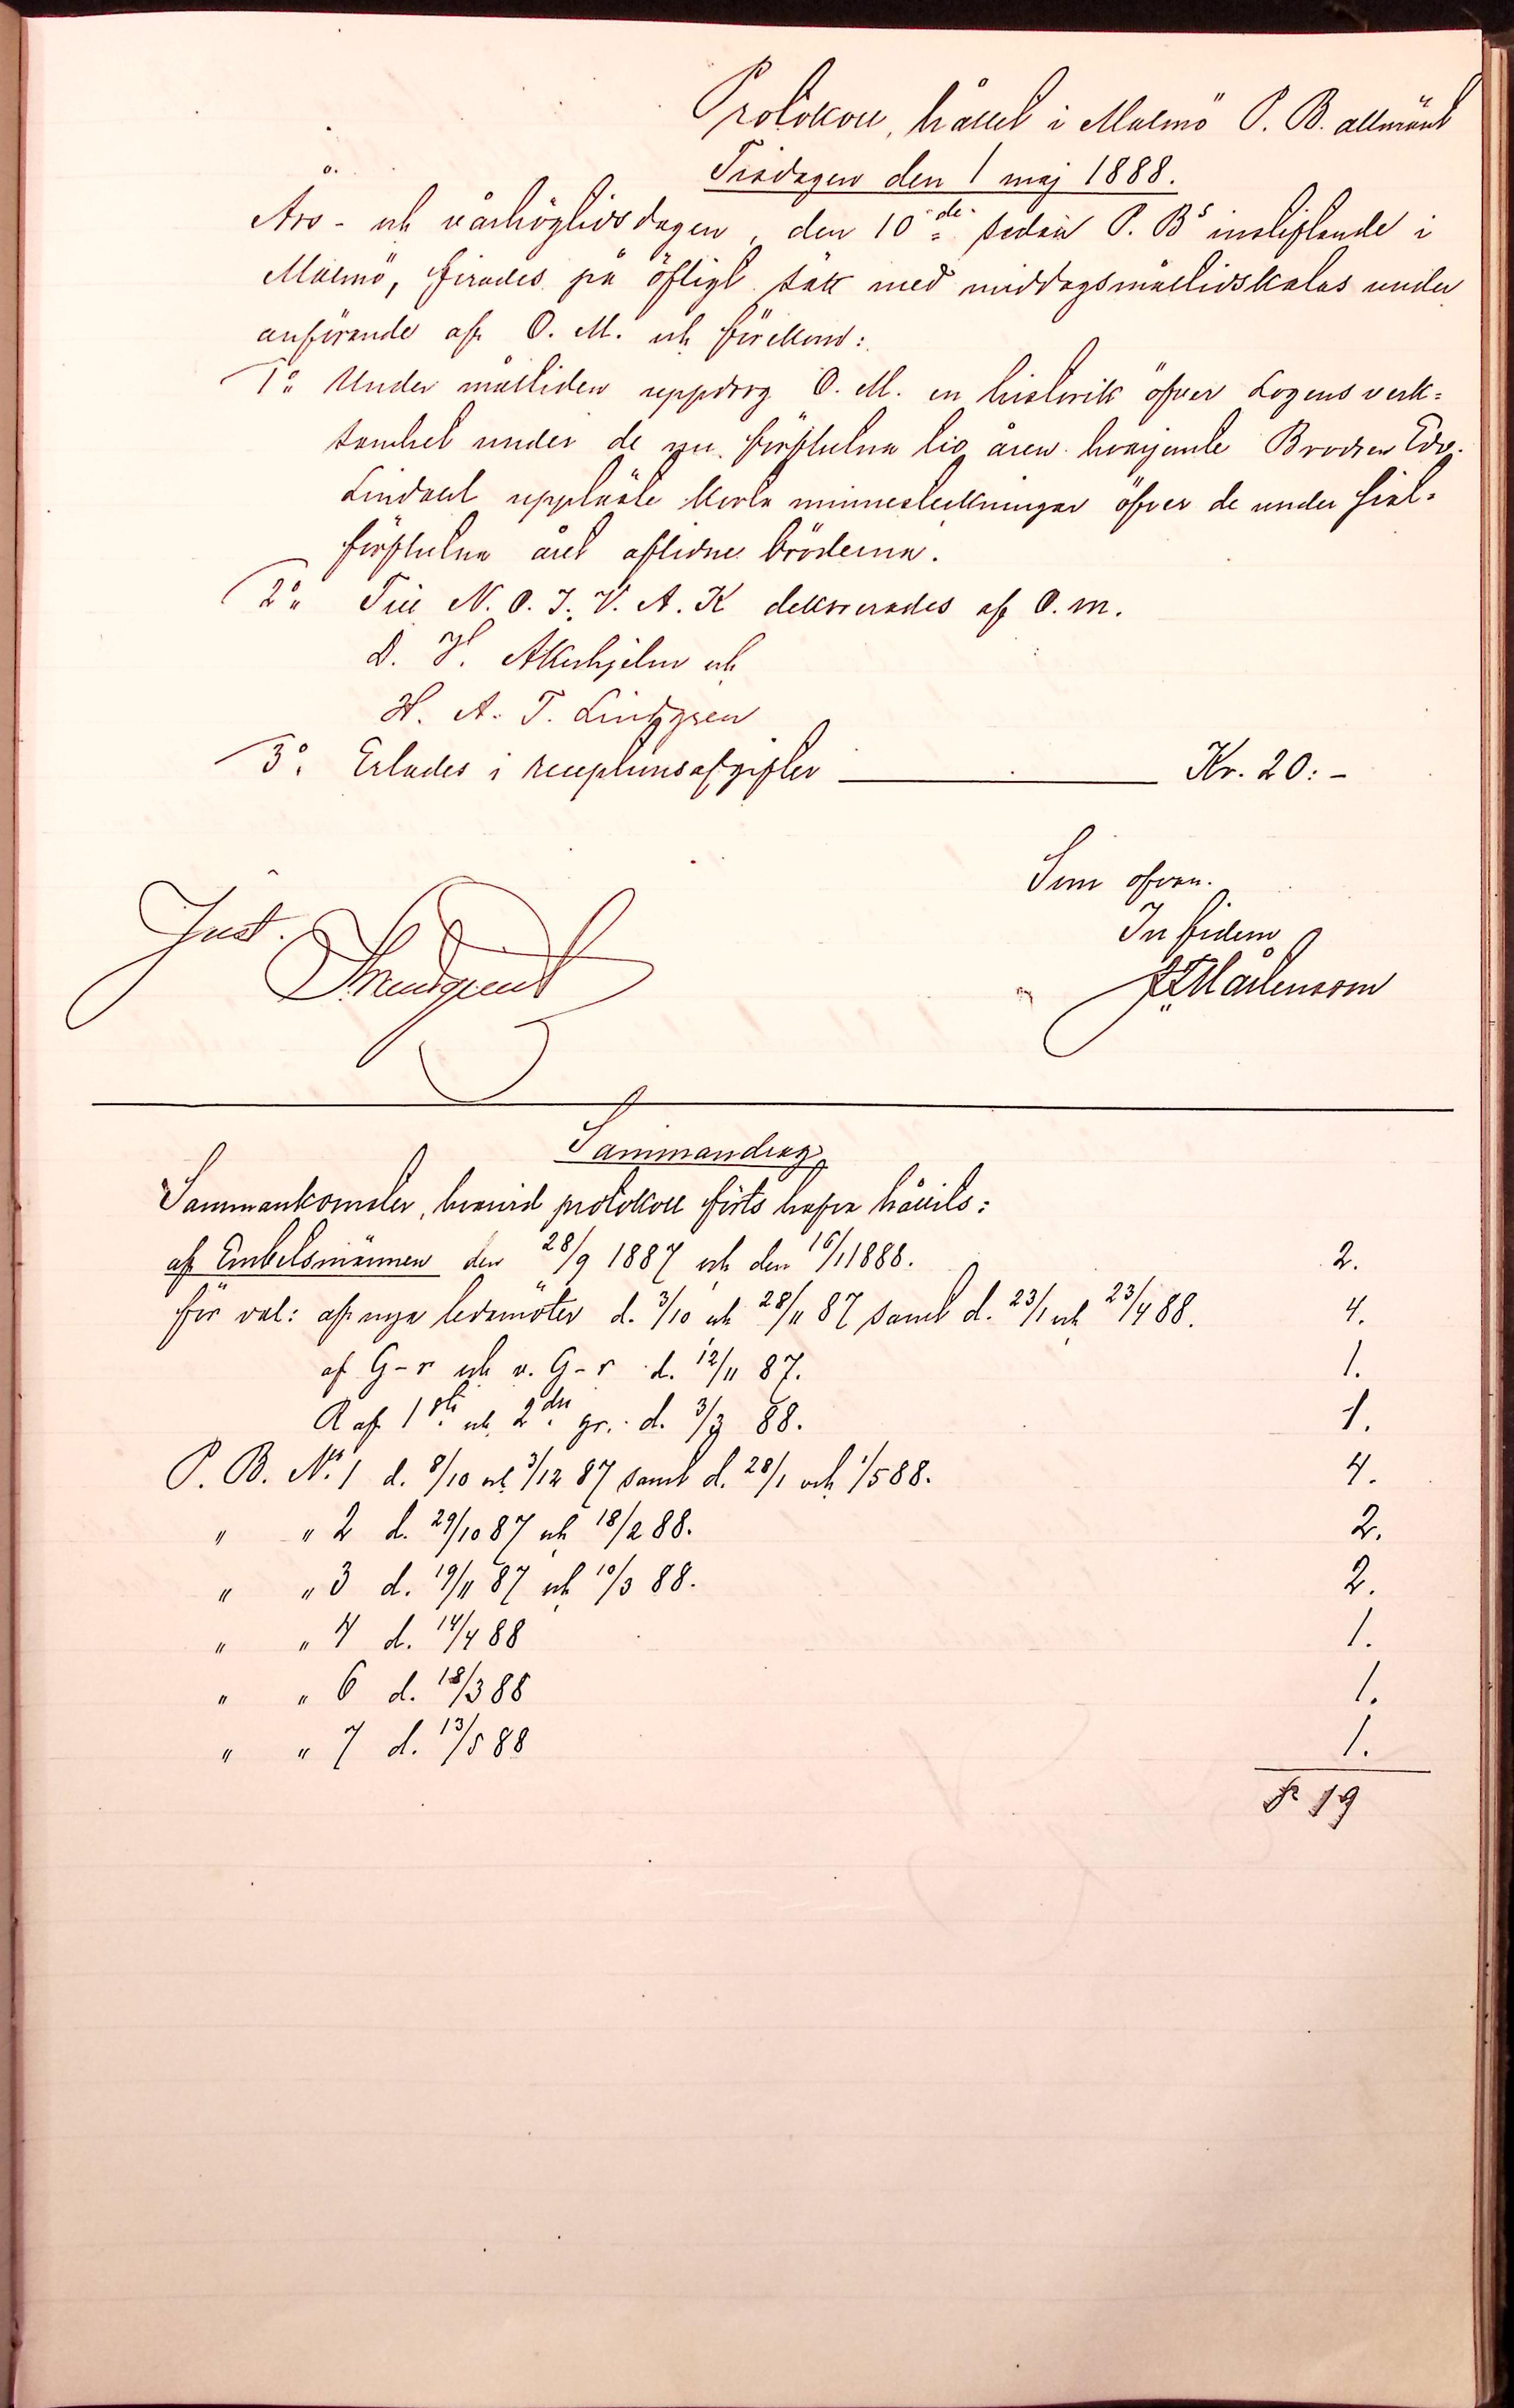 Protokoll, hållet i Malmö P. B. allmänt
Tisdagen den 1 maj 1888.
Års- och vårhögtidsdagen, den 10de sedan P. Bs instiftande i
Malmö, firades på öfligt sätt med middagsmåltidskalas under
anförande af O. M. och förekom:
1o Under måltiden uppdrog O. M. en historik öfver Logens verk=
samhet under de nu förflutna tio åren hvarjemte Brodren Edv.
Lindahl uppläste korta minnesteckningar öfver de under sist=
förflutna året aflidne bröderna.
2o Till N. O. I. V. A. K dekorerades af O. M.
D. H. Åkerhjelm och
H. A. T. Lindgren
3o Erlades i receptionsafgifter Kr. 20:-
Som ofvan.
In fidem
Mårtensson
Just.
Sammandrag
Sammankomster, hvarvid protokoll förts hafva hållits:
af Embetsmännen den 28/9 1887 och den 16/1 1888. 2.
för val: af nya ledamöter d. 3/10 och 28/11 87 samt d. 23/1 och 23/4 88. 4.
af G-r och v. G-r d. 12/11 87. 1.
R af 1sta och 2dra gr. d. 3/3 88. 1.
P. B. No 1 d. 8/10 och 3/12 87 samt d. 28/1 och 1/5 88. 4.
" " 2 d. 29/10 87 och 18/2 88. 2.
" " 3 d. 19/11 87 och 10/3 88. 2.
" " 4 d. 14/4 88 1.
" " 6 d. 18/3 88 1.
" " 7 d. 13/5 88 1.
19